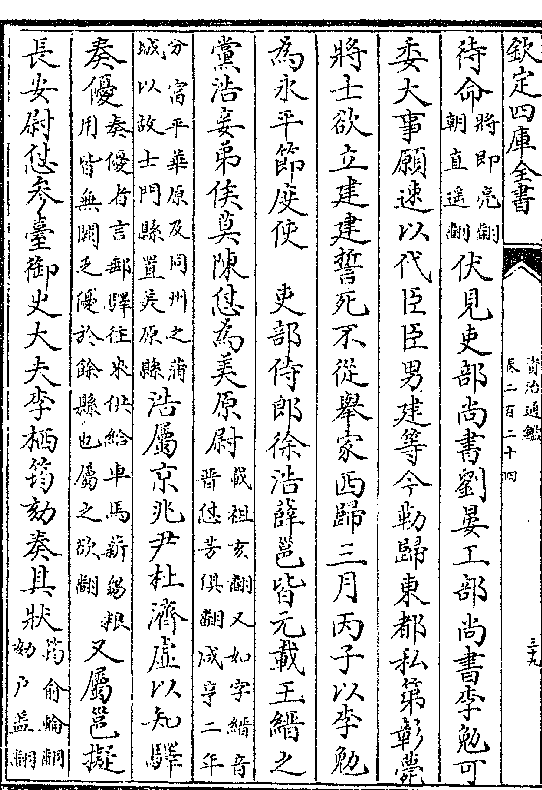 欽定四庫全書
資治通鑑
卷二百二十四
三九
待命將即亮翻朝直遥翻伏見吏部尚書劉晏工部尚書李勉可
委大事願速以代臣臣男建等今勒歸東都私第彰薨
將士欲立建建誓死不從舉家西歸三月丙子以李勉
為永平節度使 吏部侍郎徐浩薛邕皆元載王縉之
黨浩妾弟侯莫陳怤為美原尉載祖亥翻又如字縉音晉怤芳俱翻咸亨二年
分富平華原及同州之蒲城以故士門縣置美原縣浩屬京兆尹杜濟虚以知驛
奏優奏優者言郵驛往來供給車馬薪芻糧用皆無闕乏優於餘縣也屬之欲翻又屬邕擬
長安尉怤參臺御史大夫李栖筠劾奏其狀筠俞輪翻劾乃益翻